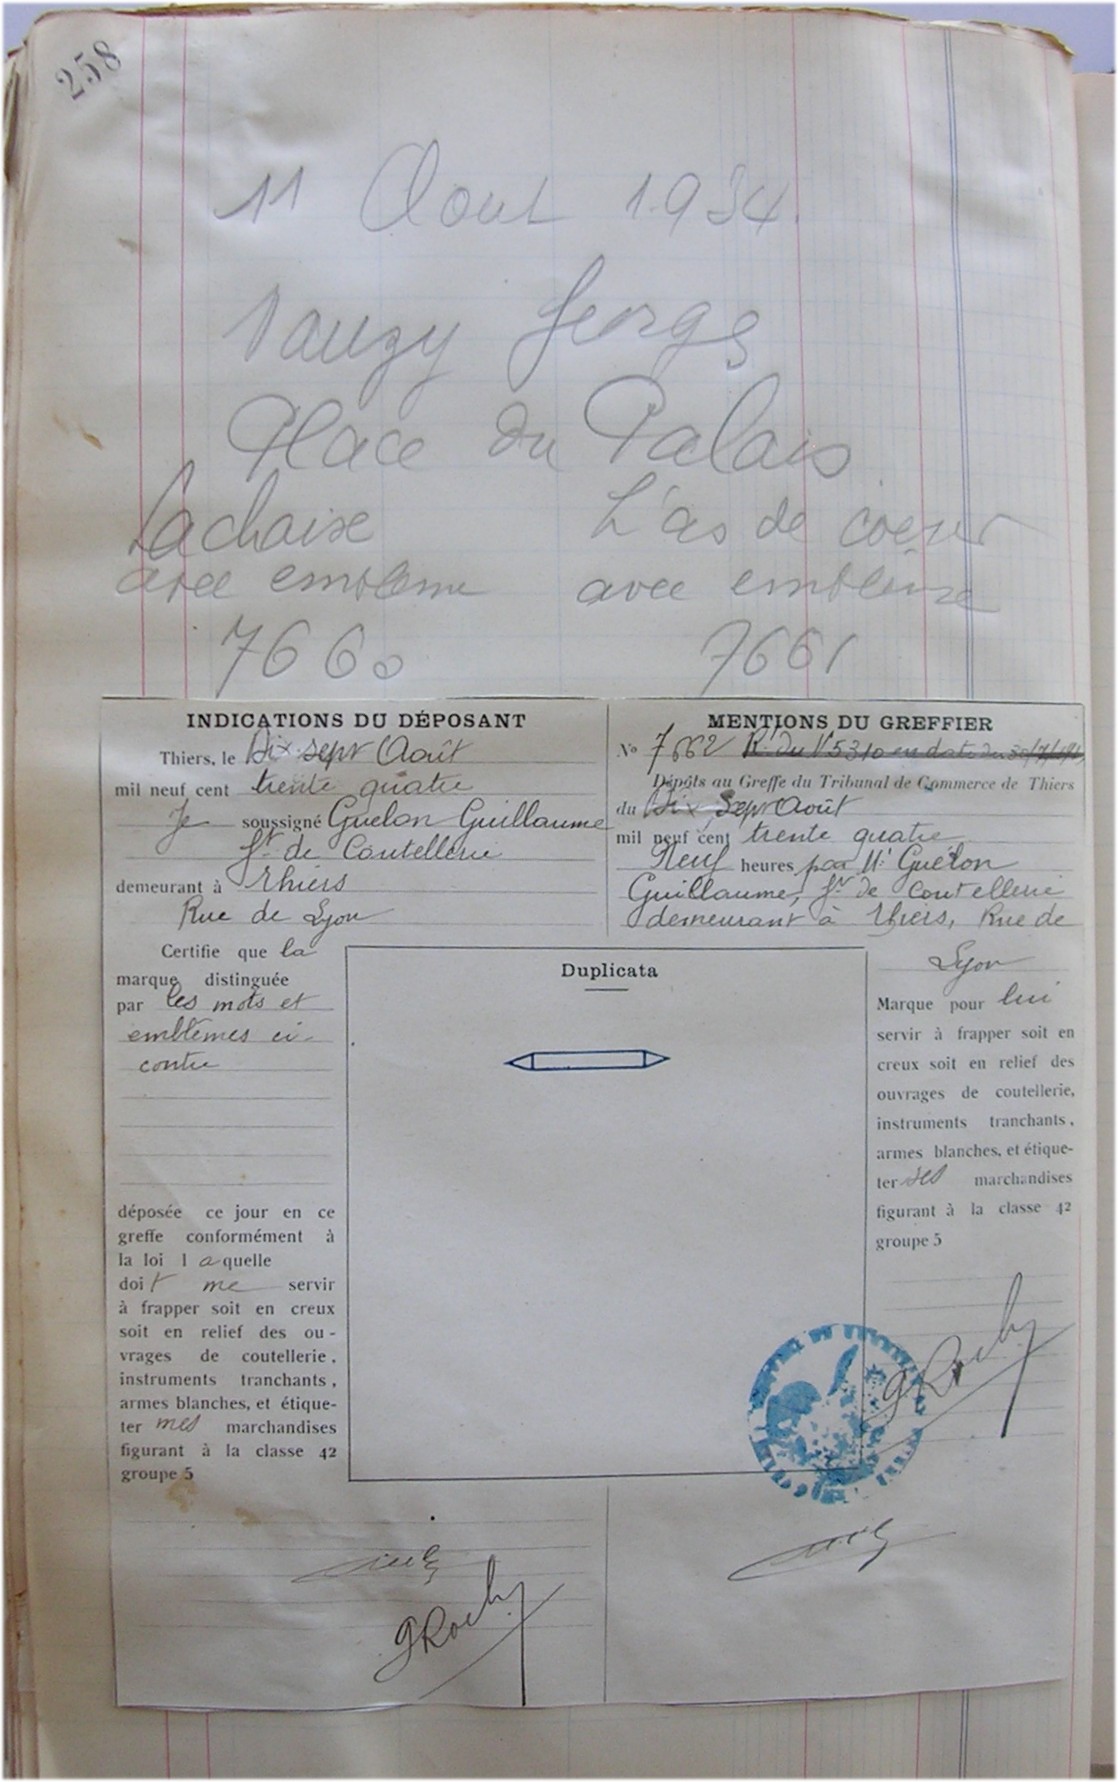 258
11 Aout 1934.
Vauzy Georges
Place du Palais
Lachaise
avec embleme
7660
L'as de coeur
avec emblème
7661
INDICATIONS DU DÉPOSANT
Thiers, le Dix-sept Août
mil neuf cent trente quatre
Je soussigné Guelon Guillaume
ft de Coutellerie
demeurant à Thiers
Rue de Lyon
MENTIONS DU GREFFIER
No 7662 R. du N° 5310 en date du
Dépôts au Greffe du Tribunal de Commerce de Thiers
du Dix Sept Août
mil neuf cent trente quatre
Neuf heures par Mr Guélon
Guillaume, ft de Coutellerie
demeurant à Thiers, Rue de
Lyon
Certifie que la
marque distinguée
par les mots et
emblèmes ci-
contre
déposée ce jour en ce
greffe conformément à
la loi laquelle
doit me servir
à frapper soit en creux
soit en relief des ou-
vrages de coutellerie,
instruments tranchants,
armes blanches, et étique-
ter mes marchandises
figurant à la classe 42
groupe 5
Duplicata
Marque pour lui
servir à frapper soit en
creux soit en relief des
ouvrages de coutellerie,
instruments tranchants,
armes blanches, et étique-
ter ses marchandises
figurant à la classe 42
groupe 5